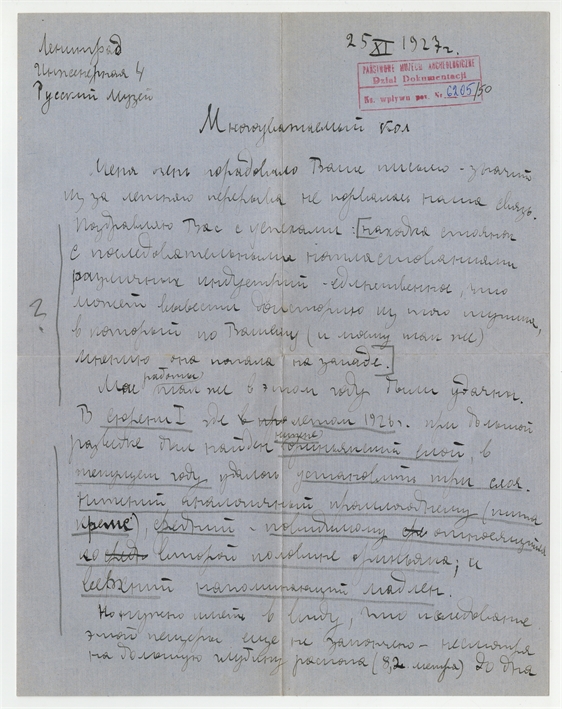 Ленинград
Инженерная 4
Русский Музей
25 XI 1927 г.
PAŃSTWOWE MUZEUM ARCHEOLOGICZNE
Dział Dokumentacji
Nr. wpływu poz. Nr. 6205/50
Многоуважаемый кол
Меня очень порадовало Ваше письмо - значит
из за летнего перерыва не порвалась наша связь.
Поздравляю Вас с успехами: [находка стоянок
с последовательными напластованиями
различных индустрий - единственное, что
может вывести доисторию из того тупика,
в который по Вашему (и моему так же)
мнению она попала на западе.]
?
Мои работы так же в этом году были удачны.
В Сюрени I где летом 1926 г. при большой
разведке был найден нижне ориньякский слой, в
текущем году удалось установить три слоя.
Нижний аналогичный прошлогоднему (типа
кремс), средний - повидимому относящийся
ко второй половине ориньяка; и
верхний напоминающий мадлен.
Но нужно иметь в виду, что исследование
этой пещеры еще не закончено - несмотря
на большую глубину раскопа (8,2 метра) до дна